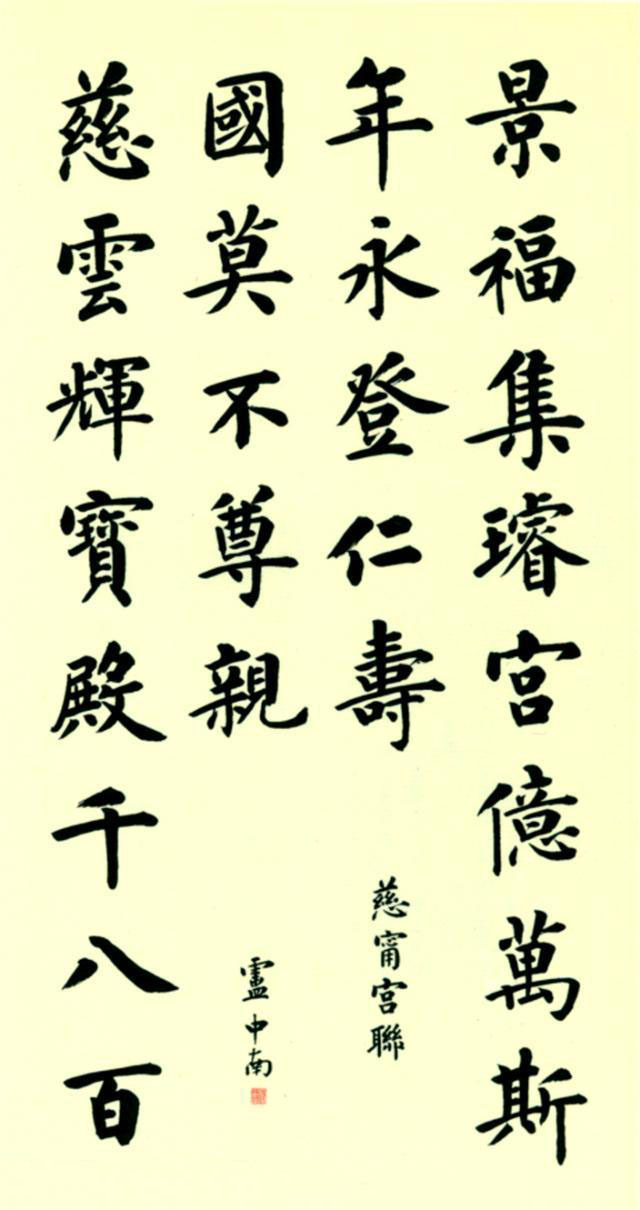 景福集璿宮億萬斯
年永登仁壽
慈甯宮聯
慈雲輝寶殿千八百
國莫不尊親
盧中南